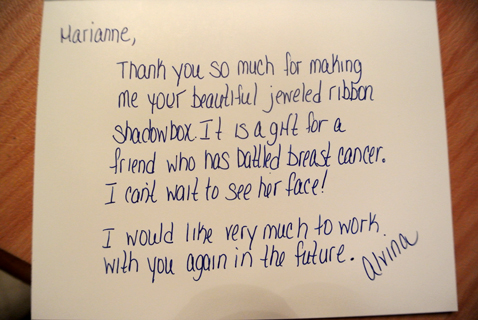 Marianne,
Thank you so much for making
me your beautiful jeweled ribbon
shadowbox. It is a gift for a
friend who has battled breast cancer.
I can't wait to see her face!
I would like very much to work
with you again in the future.
Alvina